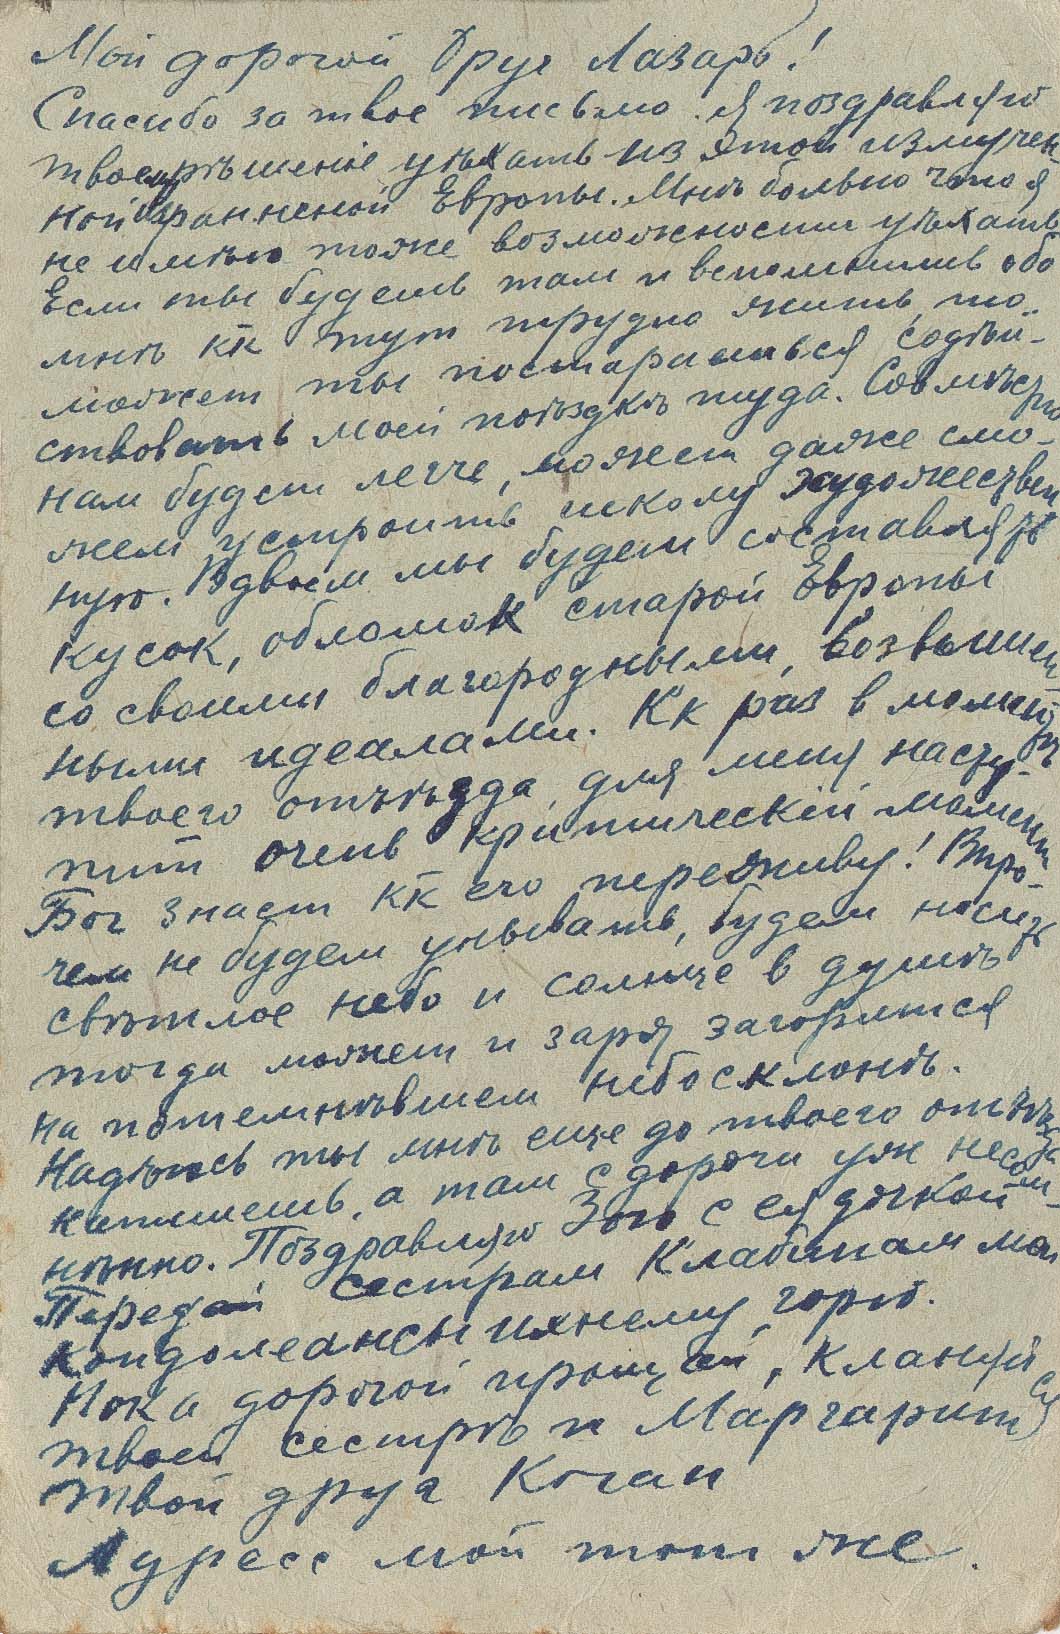 Мой дорогой Друг Лазарь!
Спасибо за твое письмо. Я поздравляю
твое рѣшеніе уѣхать из этой измучен-
ной израненной Европы. Мнѣ больно что я
не имѣю тоже возможности уѣхать.
Если ты будешь там и вспомнишь обо
мнѣ кк тут трудно жить, то
может ты постараешься содѣй-
ствовать моей поѣздкѣ туда. Совмѣстно
нам будет легче, может даже смо-
жем устроить школу художествен
ную. Вдвоем мы будем составлять
кусок, обломок старой Европы
со своими благородными, возвышен-
ными идеалами. Кк раз в момент
твоего отъѣзда для меня насту-
пит очень критическій момент
Бог знает кк его переживу! Впро-
чем не будем унывать, будем носить
свѣтлое небо и солнце в душѣ
тогда может и заря загорится
на потемнѣвшем небосклонѣ.
Надѣюсь ты мнѣ еще до твоего отъѣзда
напишешь, а там с дороги уж несом-
нѣнно. Поздравляю Зою с ея дочкой
Передай сестрам Клабинам мои
кондолеансы ихнему горю.
Пока дорогой прощай, кланяйся
твоей сестрѣ и Маргарит
Твой друг Коган
Адресс мой тот же.